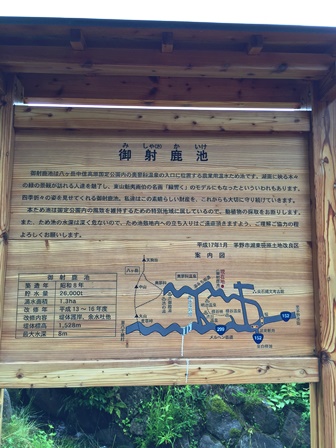 みしゃ(さ) か いけ
御射鹿池
御射鹿池は八ヶ岳中信高原国定公園内の奥蓼科温泉の入口に位置する農業用温水ため池です。湖面に映る木々
の緑の景観が訪れる人達を魅了し、東山魁夷画伯の名画「緑響く」のモデルにもなったといういわれもあります。
四季折々の姿を見せてくれる御射鹿池。私達はこの素晴らしい財産を、これからも大切に守り続けていきます。
本ため池は国定公園内の風致を維持するための特別地域に属しているので、動植物の採取をお断りします。
また、ため池の水深は深く危ないので、ため池敷地内への立ち入りはご遠慮頂きますよう、ご理解ご協力の程
よろしくお願いします。
平成17年1月 茅野市湖東笹原土地改良区
案内図
御射鹿池
築造年 昭和8年
貯水量 26,000t
満水面積 1.3ha
改修年 平成13〜16年度
改修内容 堤体護岸、余水吐他
堤体標高 1,528m
最大水深 8m
天狗岳
八ヶ岳
中山
299
152
152
メルヘン街道